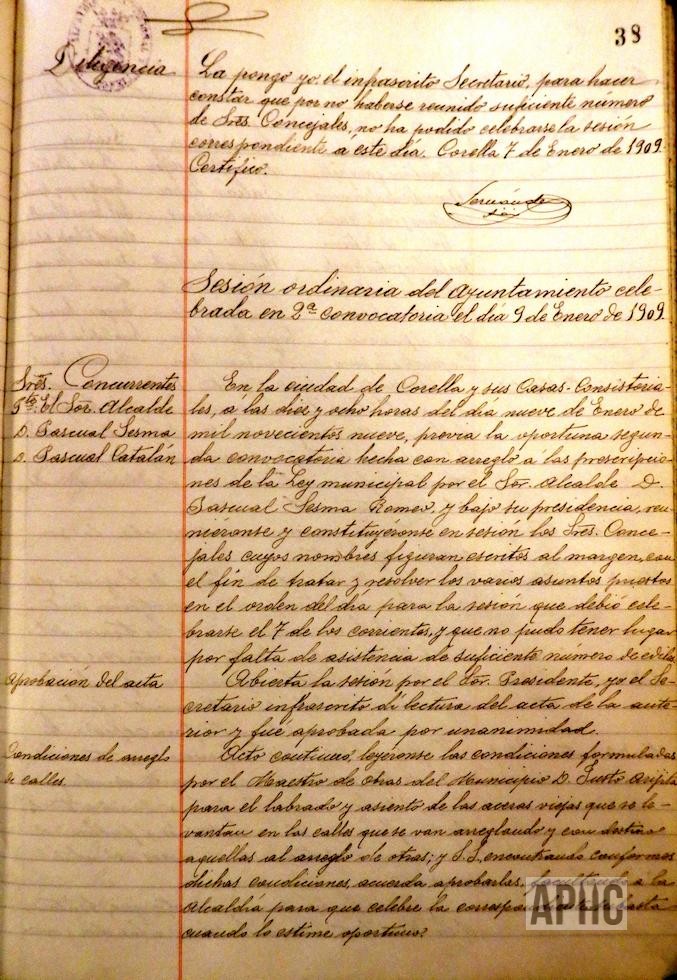 38
Diligencia
La pongo yo el infrascrito Secretario, para hacer
constar que por no haberse reunido suficiente número
de Sres. Concejales, no ha podido celebrarse la sesión
correspondiente á este día. Corella 7 de Enero de 1909.
Certifico.
Sesión ordinaria del Ayuntamiento cele-
brada en 2ª convocatoria el día 9 de Enero de 1909.
Sres. Concurrentes
Pte. El Sor. Alcalde
D. Pascual Sesma
D. Pascual Catalán
En la ciudad de Corella y sus Casas-Consistoria-
les, á las diez y ocho horas del día nueve de Enero de
mil novecientos nueve, previa la oportuna segun-
da convocatoria hecha con arreglo á las prescripcio-
nes de la Ley municipal por el Sor. Alcalde D.
Pascual Sesma Romeo, y bajo su presidencia, reu-
niéronse y constituyéronse en sesión los Sres. Conce-
jales cuyos nombres figuran escritos al margen, con
el fin de tratar y resolver los varios asuntos puestos
en el orden del día para la sesión que debió cele-
brarse el 7 de los corrientes, y que no pudo tener lugar
por falta de asistencia de suficiente número de ediles.
Aprobación del acta
Abierta la sesion por el Sor. Presidente, yo el Se-
cretario infrascrito dí lectura del acta de la ante-
rior y fué aprobada por unanimidad.
Condiciones de arreglo
de calles.
Acto continuo, leyéronse las condiciones formuladas
por el Maestro de Obras del Municipio D. Justo
para el labrado y asiento de las aceras viejas que se le-
vantan en las calles que se van arreglando y con destino
aquellas al arreglo de otras; y S.S. encontrando conformes
dichas condiciones, acuerda aprobarlas, facultando á la
Alcaldía para que celebre la correspondiente subasta
cuando lo estime oportuno.
APHC